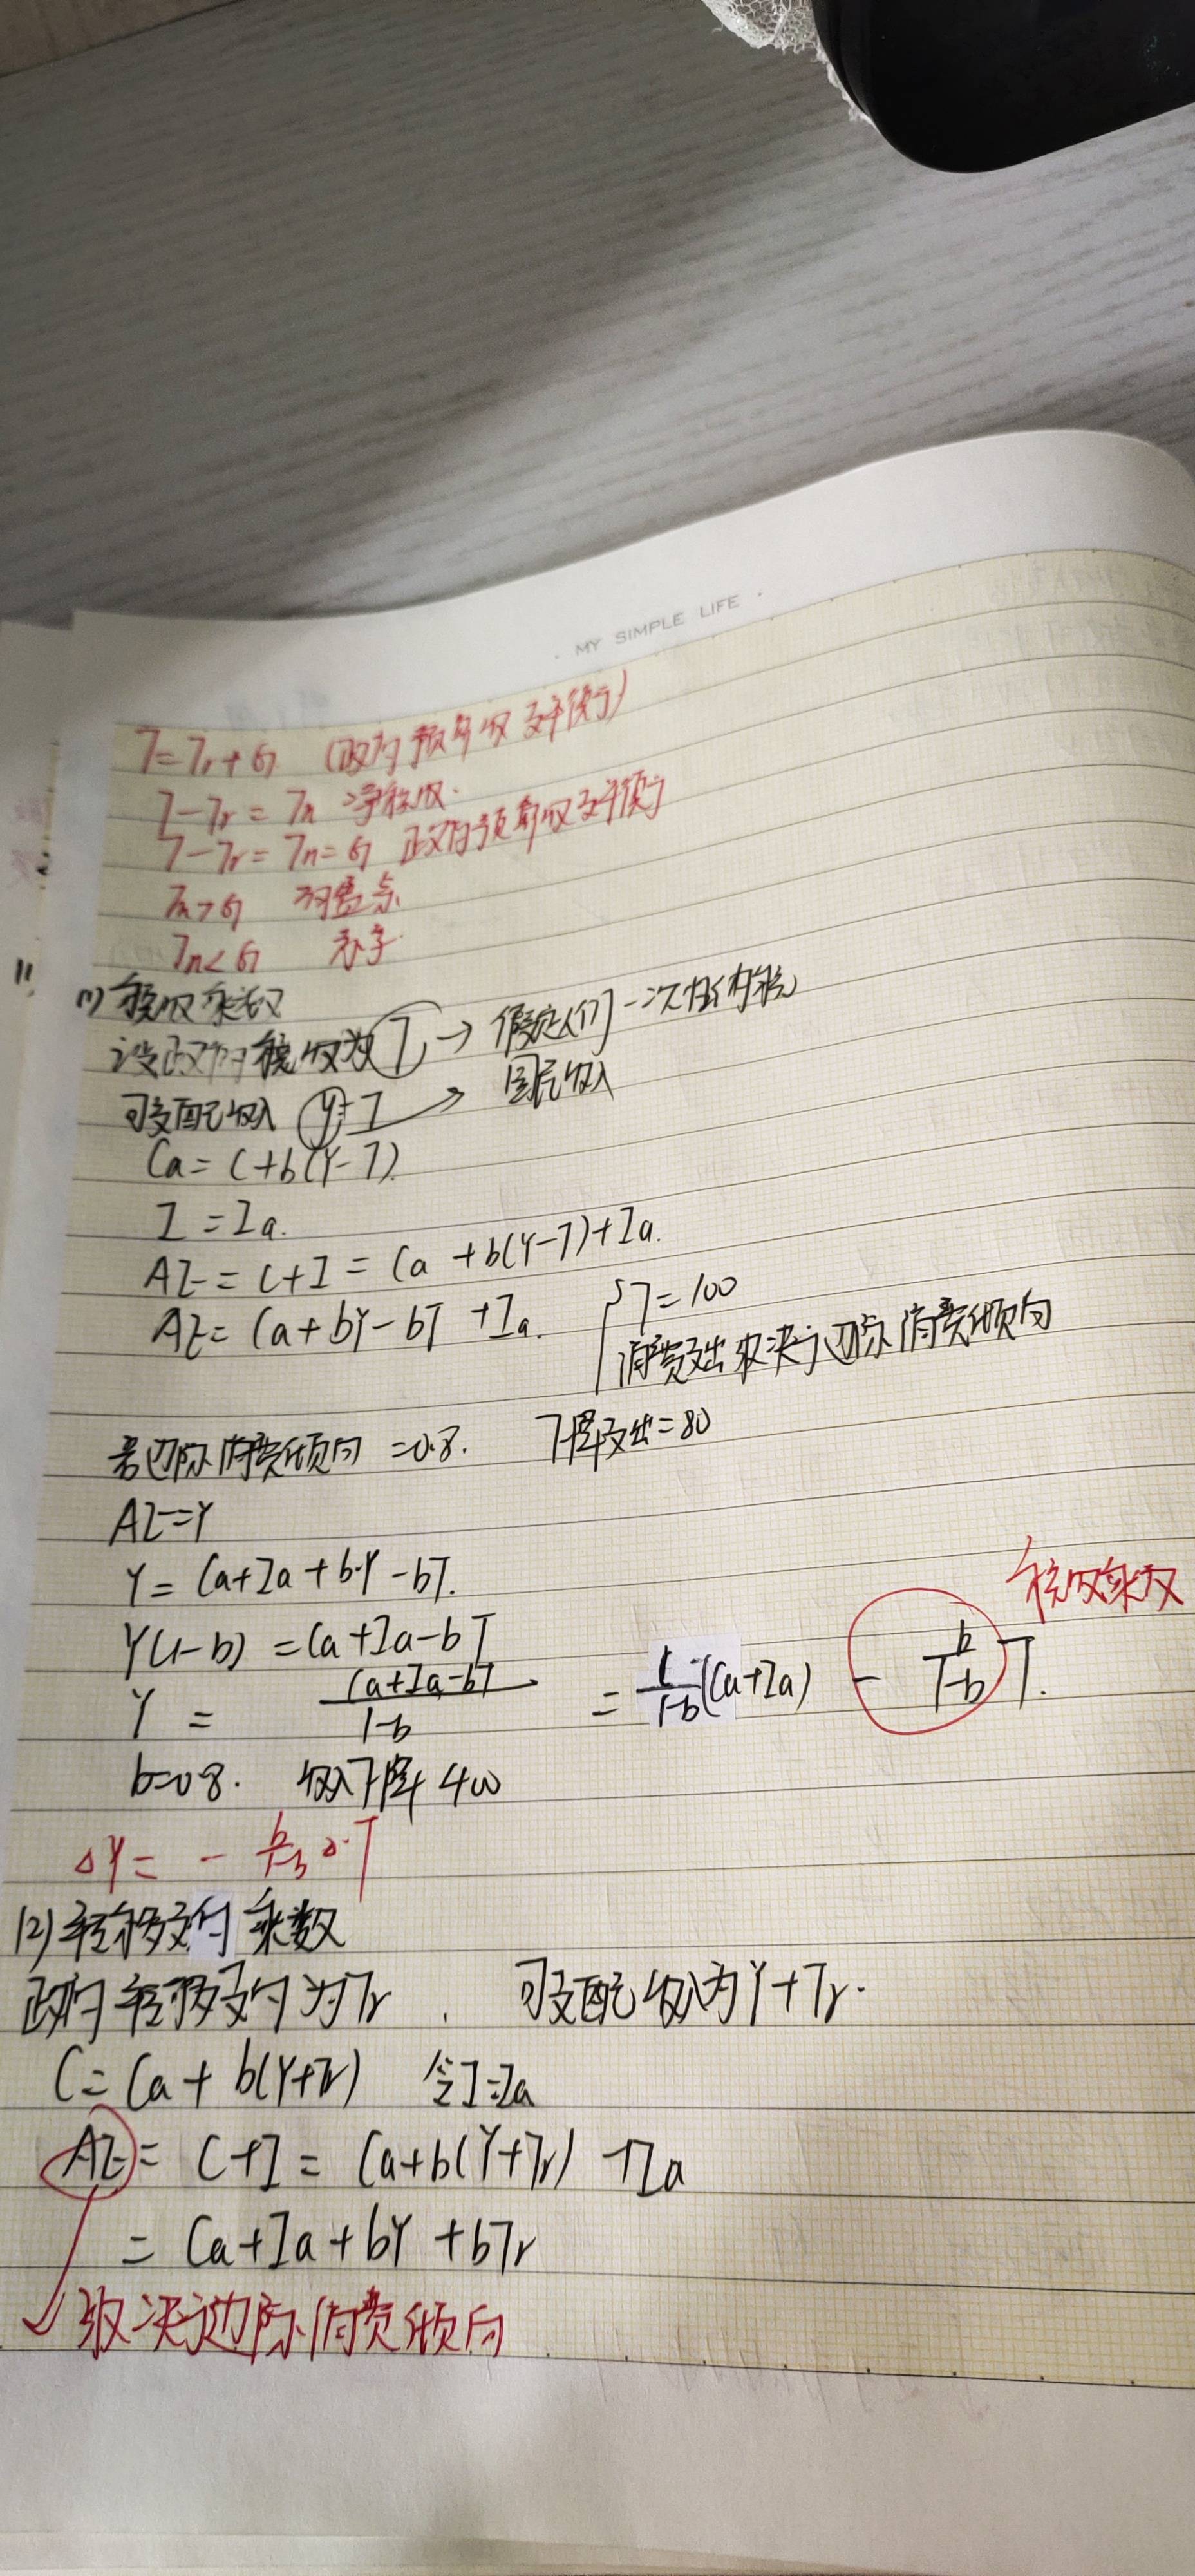 MY SIMPLE LIFE
T=Tr+G (政府预算收支平衡)
T-Tr=Tn 净税收.
T-Tr=Tn=G 政府预算收支平衡
Tn>G 有盈余
Tn<G 赤字
(1) 税收乘数
设政府税收为T → 假定人们一次性付税
可支配收入 Y-T → 国民收入
Ca=C+b(Y-T).
I=Ia.
AE=C+I=Ca+b(Y-T)+Ia.
AE=Ca+bY-bT+Ia. T=100
消费支出取决于边际消费倾向
若边际消费倾向=0.8. 下降支出=80
AE=Y
Y=Ca+Ia+bY-bT.
Y(1-b)=Ca+Ia-bT
税收乘数
Y=\frac{Ca+Ia-bT}{1-b}=\frac{1}{1-b}(Ca+Ia)-\frac{b}{1-b}T.
b=0.8. 收入下降400
△Y=-\frac{b}{1-b}△T
(2) 转移支付乘数
政府转移支付为Tr. 可支配收入为Y+Tr.
C=Ca+b(Y+Tr) 令I=Ia
AE=C+I=Ca+b(Y+Tr)+Ia
=Ca+Ia+bY+bTr
取决于边际消费倾向